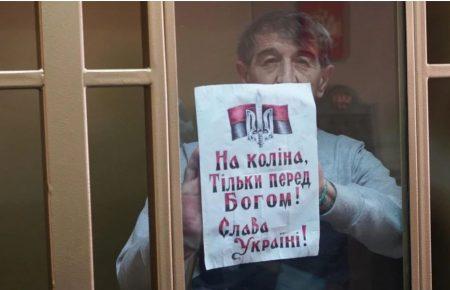 На коліна,
Тільки перед
Богом!
Слава
Україні!